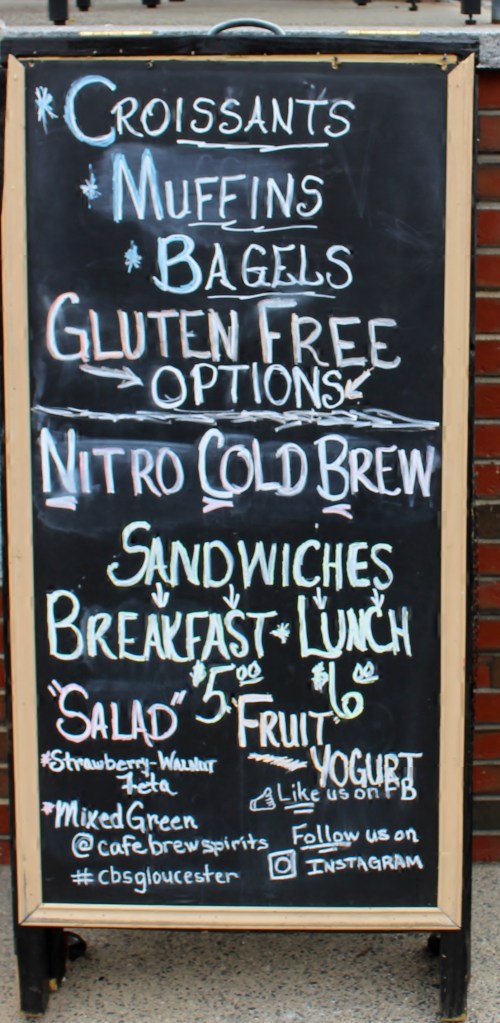 * CROISSANTS
* MUFFINS
* BAGELS
GLUTEN FREE
OPTIONS
NITRO COLD BREW
SANDWICHES
BREAKFAST * LUNCH
$5.00 $6.00
"SALAD"
* STRAWBERRY-WALNUT
Feta
* Mixed Green
"FRUIT"
YOGURT
Like us on FB
@cafebrewspirits
#cbsgloucester
Follow us on
INSTAGRAM